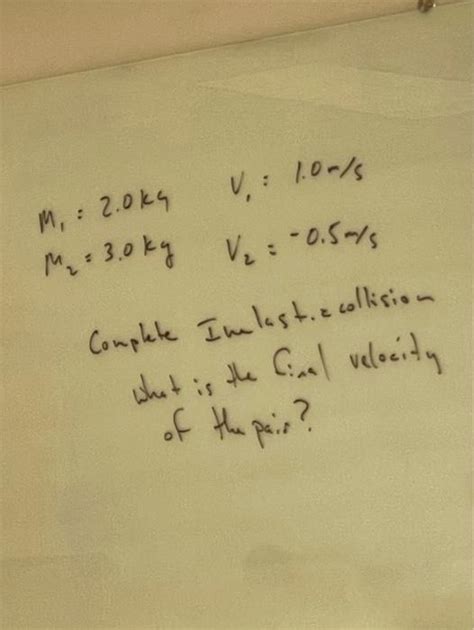 M₁ = 2.0kg V₁ = 1.0m/s
M₂ = 3.0kg V₂ = -0.5m/s
Complete Inelastic collision
What is the final velocity
of the pair?